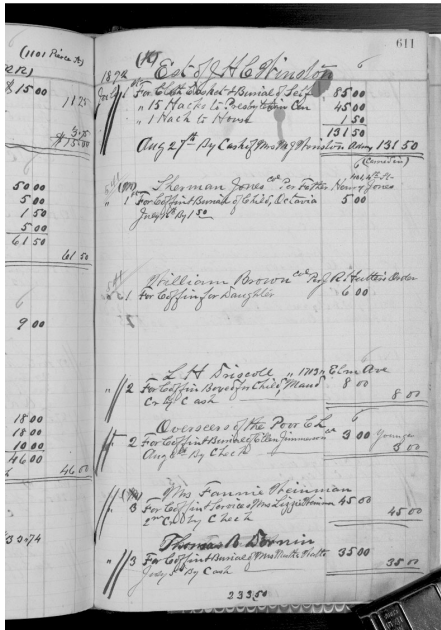 (1101 Pierce St)
$ 15.00
11 25
3.75
$ 15.00
50 00
5 00
1 50
5 00
61 50
61 50
9 00
18 00
18 00
10 00
46 00
46 00
33.74
611
(W) 6
189 Est of J H C Winston
1 For Cloth Casket & Burial of Self 85 00
" 15 Hacks to Presbyterian Cem 45 00
" 1 Hack to House 1 50
131 50
Aug 27th By Cash of Mrs M J Winston Admx 131 50
6 (Cannelin)
Sherman Jones col Per Father Henry Jones
" 1 For Coffin & Burial of Child, Octavia 5 00
July By 1 50
William Brown col R Hutter's Order
1 For Coffin for Daughter 6 00
L H Driscoll " 1713 Elm Ave
2 For Coffin Boxed for Child, Maud 8 00
Cr By Cash 8 00
Overseers of the Poor C L 6
2 For Coffin & Burial of Ellen Jimmerson 3 00 Younger
Aug 6th By Check 3 00
Mrs Fannie Heinman
3 For Coffin & Services of Mrs Lizzie 45 00
Cr By Check 45 00
Thomas D. Dornin
3 For Coffin & Burial of Mrs 35 00
July 5th By Cash 35 00
233.50